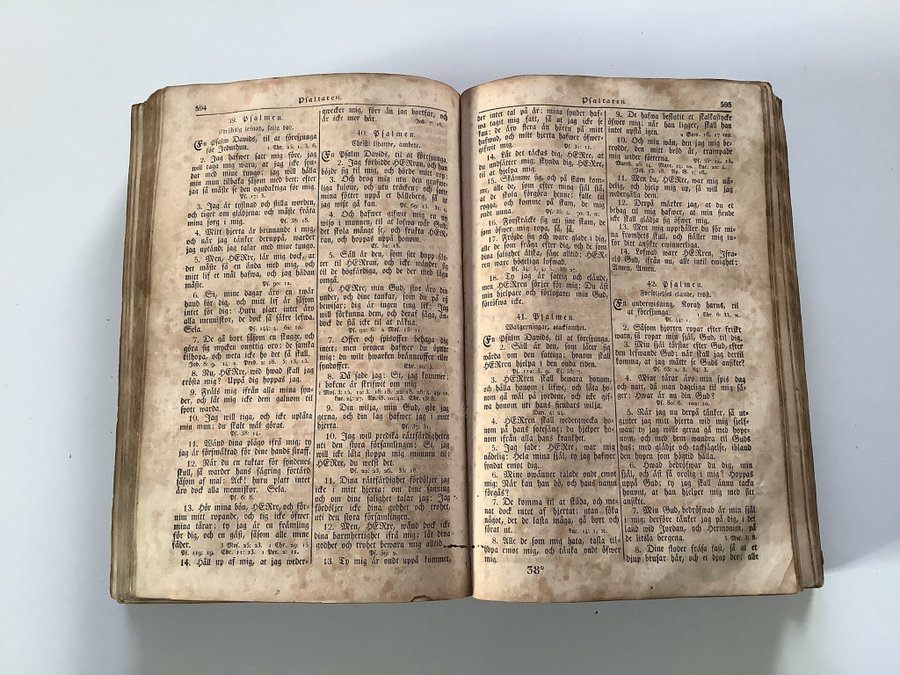 594
Psaltaren.
39. Psalmen.
Christlig lefnad, salig död.
En Psalm Davids, til at föresjunga
för Jeduthun.
2. Jag hafwer satt mig före, jag
will taga mig wara, at jag icke syn-
dar med mine tungo; jag will hålla
min mun tilbaka såsom med bett; efter
jag så måste se den ogudaktiga för mig.
3. Jag är tystnad och stilla worden,
och tiger om glädjena; och måste fräta
mina sorg i mig.
4. Mitt hjerta är brinnande i mig,
och när jag tänker deruppå, warder
jag uptänd; jag talar med mine tungo.
5. Men, HERre, lär mig dock, at
det måste få en ända med mig, och
mitt lif et mål hafwa, och jag hädan
måste.
6. Si, mine dagar äro en twär
hand för dig, och mitt lif är såsom
intet för dig: Huru platt intet äro
alla menniskor, de dock så säkre lefwa.
Sela.
7. De gå bort såsom en skugge, och
göra sig mycken onyttig oro; de samka
tilhopa, och weta icke ho det få skall.
8. Nu, HERre, wid hwad skall jag
trösta mig? Uppå dig hoppas jag.
9. Fräls mig ifrån alla mina syn-
der, och låt mig icke dem galnom til
spott warda.
10. Jag will tiga, och icke uplåta
min mun; du skalt wäl görat.
11. Wänd dina plågo ifrå mig; ty
jag är försmäktad för dine hands straff.
12. När du en tuktar för syndenes
skull, så warder hans fägring förtärd
såsom af mal: Ack! huru platt intet
äro dock alla menniskor. Sela.
13. Hör mine bön, HERre, och för-
nim mitt ropande, och tig icke öfwer
mina tårar; ty jag är en främling
för dig, och en gäst, såsom alle mine
fäder.
14. Håll up af mig, at jag weder-
qwecker mig, förr än jag bortfar, och
är icke mer här.
40. Psalmen.
Christi lidande, ämbete.
En Psalm Davids, til at föresjunga.
2. Jag förbidde HERran, och han
böjde sig til mig, och hörde mitt rop;
3. Och drog mig utu den grufwe-
liga kulone, och utu träcken; och satte
mina fötter uppå et hälleberg, så at
jag wisst gå kan.
4. Och hafwer gifwit mig en ny
wiso i munnen, til at lofwa wår Gud;
det skola månge se, och frukta HER-
ran, och hoppas uppå honom.
5. Säll är den, som sitt hopp sät-
ter til HERran, och icke wänder sig
til de högfärdiga, och de der med lögn
omgå.
6. HERre, min Gud, stor äro din
under, och dine tankar, som du på oss
bewisar; dig är ingen ting lik: Jag
will förkunna dem, och deraf säga, än-
dock de så icke til at räkna.
7. Offer och spisoffer behaga dig
intet; men öronen hafwer du öpnat
mig; du wilt hwarken bränneoffer eller
syndoffer.
8. Då sade jag: Si, jag kommer;
i bokene är skrifwit om mig.
9. Din wilja, min Gud, gör jag
gerna, och din lag hafwer jag i mitt
hjerta.
10. Jag will predika rättfärdigheten
uti den stora församlingen: Si, jag
will icke låta stoppa mig munnen til;
HERre, du wetst det.
11. Dina rättfärdighet fördöljer jag
icke i mitt hjerta; om dine sanning
och om dine salighet talar jag: Jag
fördöljer icke dina godhet och trohet
uti den stora församlingen.
12. Men, HERre, wänd dock icke
dina barmhertighet ifrå mig; låt dina
godhet och trohet bewara mig alltid.
13. Ty mig är ondt uppå kommet,
Psaltaren.
595
der intet tal på är: mina synder haf-
wa tagit mig fatt, så at jag icke se
kan; de äro flera än håren på mitt
hufwud, och mitt hjerta hafwer öfwer-
gifwit mig.
14. Låt det täckas dig, HERre, at
du undsätter mig; skynda dig, HERre,
til at hjelpa mig.
15. Skämme sig, och på skam kom-
me, alle de, som efter mina själ stå,
at de skola förgöra henne; falle til-
rygga, och komme på skam, de mig
ondt unna.
16. Förskräcke sig uti sine skam, de
som öfwer mig ropa, så, så.
17. Fröjde sig och ware glade i dig,
alle de som fråga efter dig, och de som
dina salighet älska, säge alltid: HER-
ren ware högeliga lofwad.
18. Ty jag är fattig och elände;
men HERren sörjer för mig: Du äst
min hjelpare och förlossare; min Gud,
fördröj icke.
41. Psalmen.
Wälgerningar, otacksamhet.
En Psalm Davids, til at föresjunga.
2. Säll är den, som låter sig
wårda om den fattiga; honom skall
HERren hjelpa i den onda tiden.
3. HERren skall bewara honom,
och hålla honom i lifwet, och låta ho-
nom gå wäl på jordene, och icke gif-
wa honom uti hans fiendars wilja.
4. HERren skall wederqwecka ho-
nom på hans sotesäng; du hjelper ho-
nom ifrån alla hans krankhet.
5. Jag sade: HERre, war mig
nådelig: Hela mina själ, ty jag hafwer
syndat emot dig.
6. Mine owänner talade ondt emot
mig: När kan han dö, och hans namn
förgås?
7. De komma til at skåda, och me-
na dock intet af hjertat; utan söka
något, det de lasta måga, gå bort och
föra ut.
8. Alle de som mig hata, tasla til-
hopa emot mig, och tänka ondt öfwer
mig.
38*
9. De hafwa beslutit et skalkastycke
öfwer mig; när han ligger, skall han
intet upstå igen.
10. Och min wän, den jag mig be-
trodde, den mitt bröd åt, trampade
mig under fötterna.
11. Men du, HERre, war mig nå-
delig, och hjelp mig up, så will jag
wedergäll a dem.
12. Derpå märker jag, at du et
behag til mig hafwer, at min fiende
icke skall glädja sig öfwer mig.
13. Men mig uppehåller du för mi-
na fromhets skull, och ställer mig in-
för ditt ansikte ewinnerliga.
14. Lofwad ware HERren, Isra-
els Gud, ifrån nu, allt intil ewighet:
Amen, Amen.
42. Psalmen.
Förföljelses elände, tröst.
En underwisning, Korah barnas, til
at föresjunga.
2. Såsom hjorten ropar efter friskt
watn, så ropar min själ, Gud, til dig.
3. Min själ törstar efter Gud, efter
den lefwande Gud: när skall jag dertil
komma, at jag måtte se Guds ansikte?
4. Mine tårar äro min spis dag
och natt, då man dageliga til mig sä-
ger: Hwar är nu din Gud?
5. När jag nu derpå tänker, så ut-
gjuter jag mitt hjerta wid mig sjelf-
wan; ty jag wille gerna gå med hope-
nom, och med dem wandra til Guds
hus; med glädje och tacksägelse, ibland
den hopen som högtid hålla.
6. Hwad bedröfwar du dig, min
själ, och äst så orolig i mig? Hoppas
uppå Gud; ty jag skall ännu tacka
honom, at han hjelper mig med sitt
ansikte.
7. Min Gud, bedröfwad är min själ
i mig; derföre tänker jag på dig, i det
land wid Jordan, och Hermonim, på
de litsla bergena.
8. Dine flodar fräsa fast, så at et
djup brusar här, och et djup der; alle